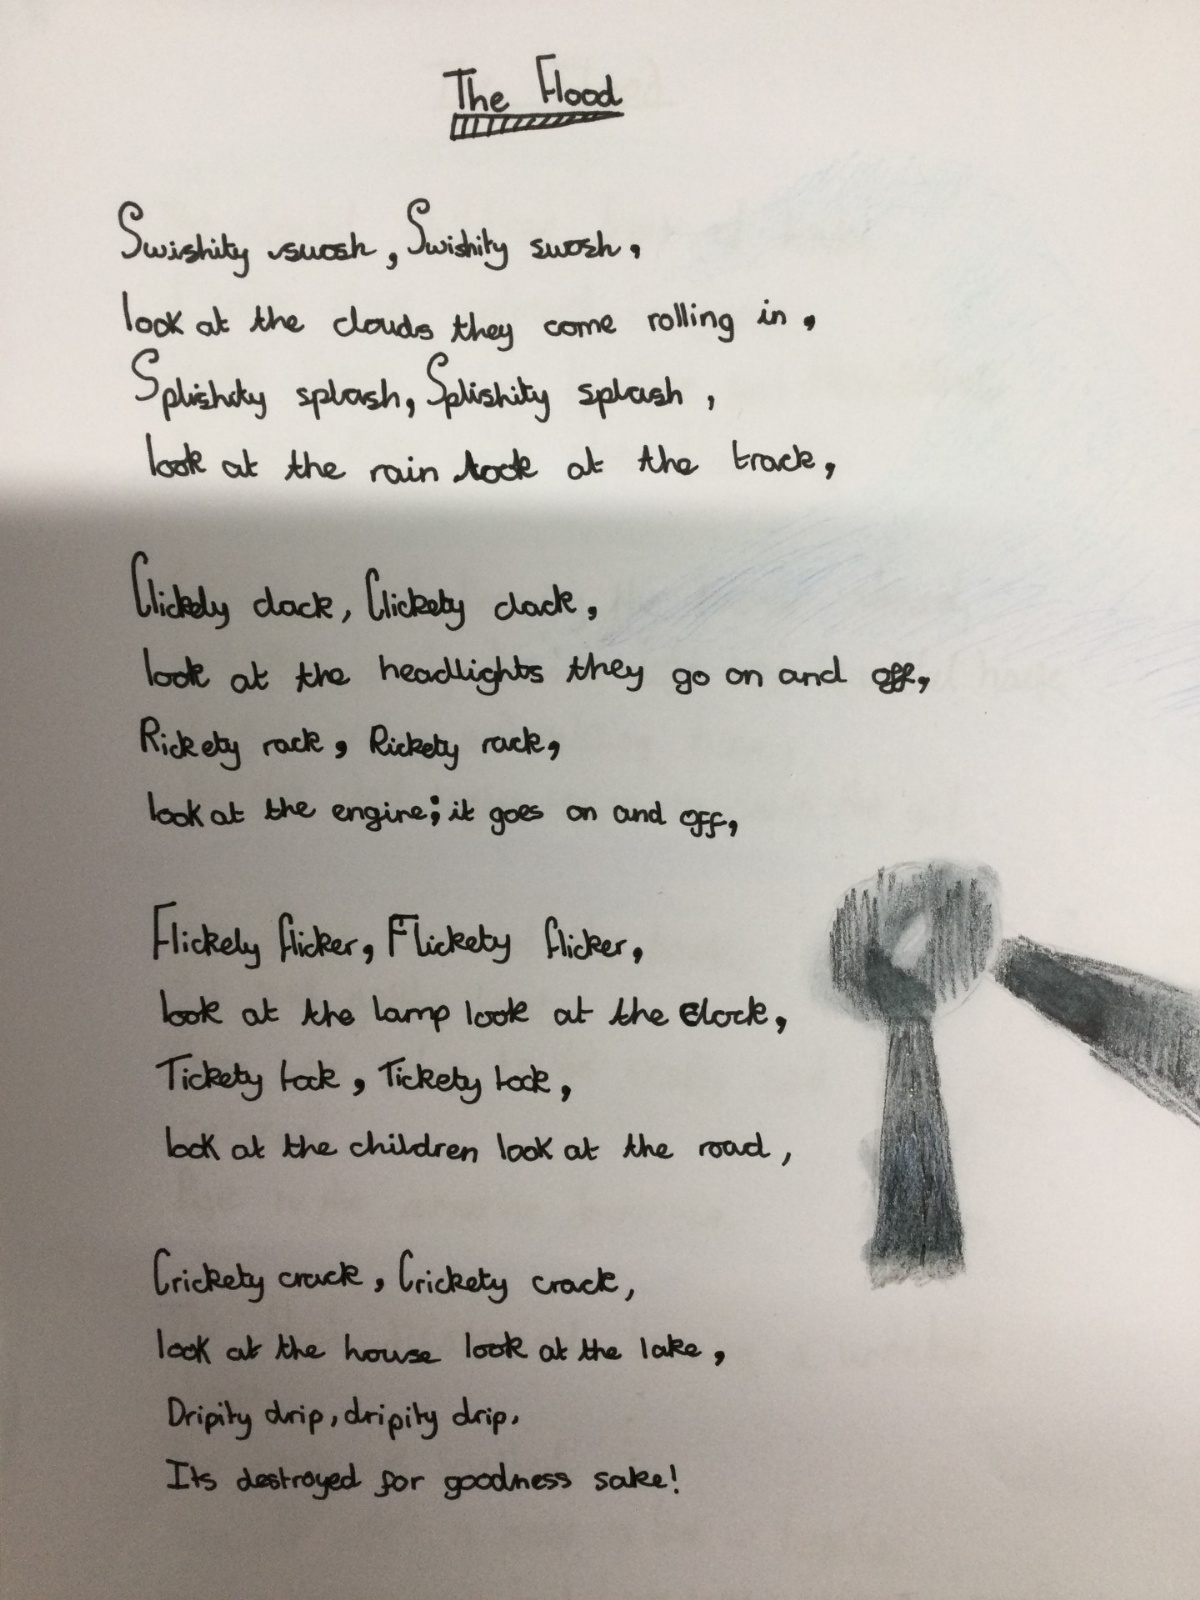 The Flood
Swishity swosh, Swishity swosh,
look at the clouds they come rolling in,
Splishity splash, Splishity splash,
look at the rain look at the track,
Clickety clack, Clickety clack,
look at the headlights they go on and off,
Rickety rack, Rickety rack,
look at the engine; it goes on and off,
Flickety flicker, Flickety flicker,
look at the lamp look at the clock,
Tickety tock, Tickety tock,
look at the children look at the road,
Crickety crack, Crickety crack,
look at the house look at the lake,
Dripity drip, dripity drip.
Its destroyed for goodness sake!